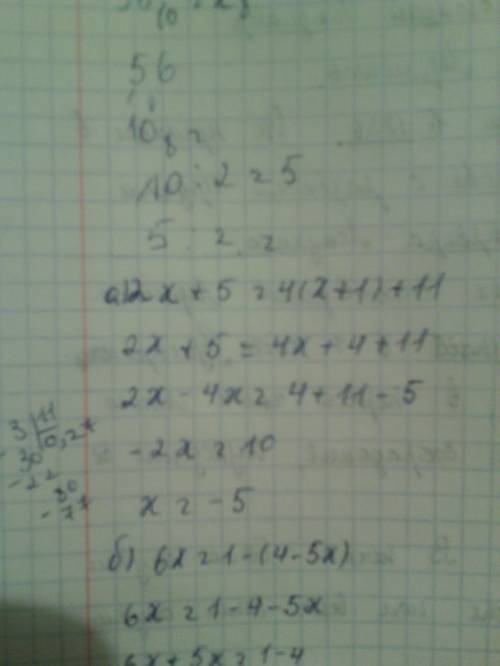 56
10₈ =
10 : 2 = 5
5 : 2 =
а) 2x + 5 = 4(x+1)+11
2x + 5 = 4x + 4 + 11
2x - 4x = 4+11-5
-2x = 10
x = -5
б) 6x = 1-(4-5x)
6x = 1-4-5x
6x + 5x = 1-4
3 11
30 0,27
-22
80
-77